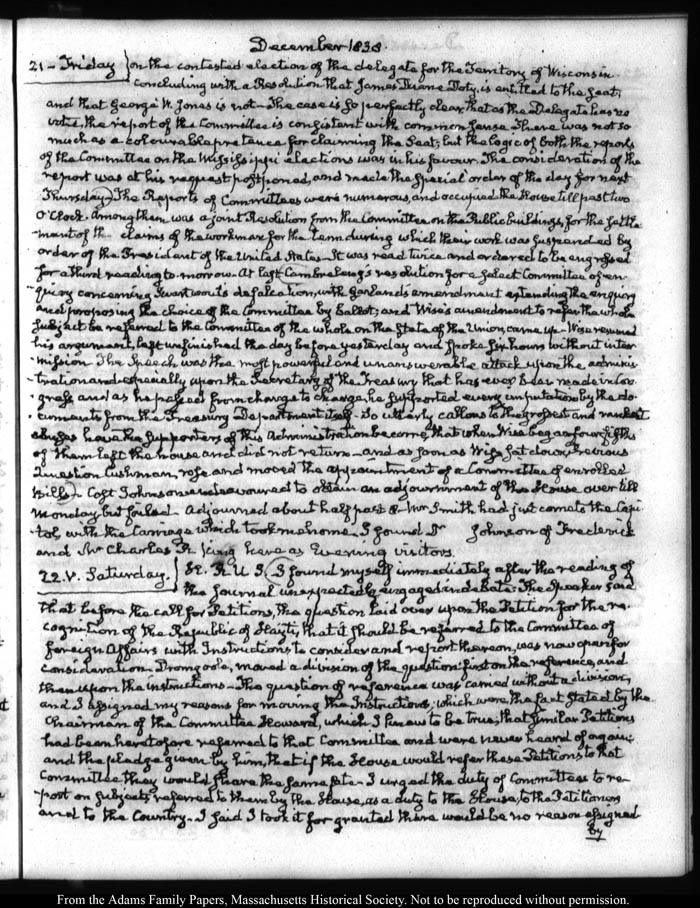 December 1838.
21 - Friday on the contested election of the delegate for the Territory of Wisconsin
concluding with a Resolution that James Duane Doty, is entitled to the Seat,
and that George W. Jones is not - The case is so perfectly clear, that as the Delegate has no
vote, the report of the Committee is consistent with common sense. There was not so
much as a colourable pretence for claiming the Seat; but the logic of both the reports
of the Committee on the Mississippi elections was in his favour. The consideration of the
report was at his request postponed, and made the special order of the day for next
Thursday - The Reports of Committees were numerous, and occupied the House till past two
O'Clock. Among them was a joint Resolution from the Committee on the Public buildings, for the settle
ment of the claims of the workmen for the term during which their work was suspended by
order of the President of the United States - It was read twice and ordered to be engrossed
for a third reading to-morrow - At last Cambreleng's resolution for a select Committee of en-
quiry concerning Swartwout's defalcation, with Garland's amendment extending the enquiry
and proposing the choice of the Committee by Ballot; and Wise's amendment to refer the whole
subject be referred to the Committee of the whole on the State of the Union, came up - Wise resumed
his argument, left unfinished the day before yesterday and spoke six hours without inter
-mission. The Speech was the most powerful and unanswerable attack upon the adminis
-tration and especially upon the Secretary of the Treasury that has ever been made in Con-
-gress and as he passed from charge to charge, he supported every imputation by the do-
-cuments from the Treasury Department itself. So utterly callous to the grossest and rankest
abuses have the supporters of this Administration become, that when Wise began four fifths
of them left the house and did not return - and as soon as Wise sat down, Previous
Question Cushman, rose and moved the appointment of a Committee of enrolled
Bills. Cost Johnson endeavoured to obtain an adjournment of the House over till
Monday but failed. Adjourned about half past 8. Mr Smith had just come to the Capi-
tol with the Carriage which took me home. I found Dr Johnson of Frederick
and Mr Charles King here as Evening visitors.
22. V. Saturday. H. R. U S I found myself immediately after the reading of
the journal unexpectedly engaged in debate. The Speaker said
that before the call for Petitions, the question laid over upon the Petition for the re-
cognition of the Republic of Hayti, that it should be referred to the Committee of
foreign Affairs with Instructions to consider and report thereon, was now open for
consideration - Dromgoole, moved a division of the question first on the reference, and
then upon the instructions - The question of reference was carried without a division,
and I assigned my reasons for moving the Instructions, which were the fact stated by the
Chairman of the Committee Howard, which I knew to be true, that similar Petitions
had been heretofore referred to that Committee and were never heard of again;
and the pledge given by him, that if the House would refer these Petitions, to that
Committee they would share the same fate - I urged the duty of Committees to re-
-port on subjects referred to them by the House, as a duty to the House, to the Petitioners
and to the Country - I said I took it for granted there would be no reason assigned
by
From the Adams Family Papers, Massachusetts Historical Society. Not to be reproduced without permission.